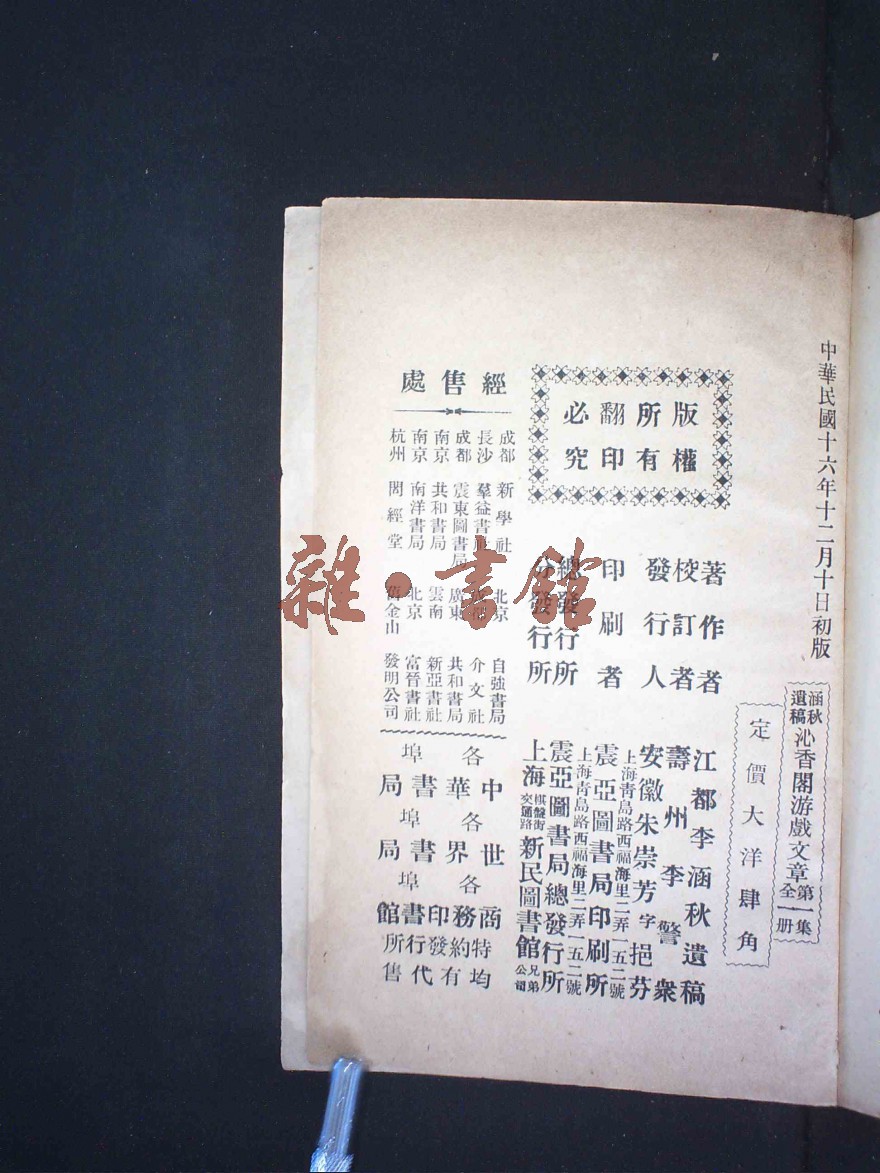 中華民國十六年十二月十日初版
涵秋遺稿 沁香閣游戲文章 第一集 全一册
定價大洋肆角
版權所有
翻印必究
著作者 江都李涵秋遺稿
校訂者 壽州李警衆
發行人 安徽朱崇芳字挹芬
上海靑島路西福海里二弄一五二號
印刷者 震亞圖書局印刷所
上海靑島路西福海里二弄一五二號
總發行所 震亞圖書局總發行所
分發行所 上海棋盤街交通路 新民圖書館 兄弟公司
經售處
成都 新學社
長沙 羣益書社
成都 震東圖書局
南京 共和書局
南京 南洋書局
杭州 問經堂
北京 自強書局
介文社
廣東 共和書局
雲南 新亞書社
北京 富晉書社
舊金山 發明公司
各埠中華書局
各埠世界書局
各埠商務印書館
特約發行所
均有代售
雜·書館